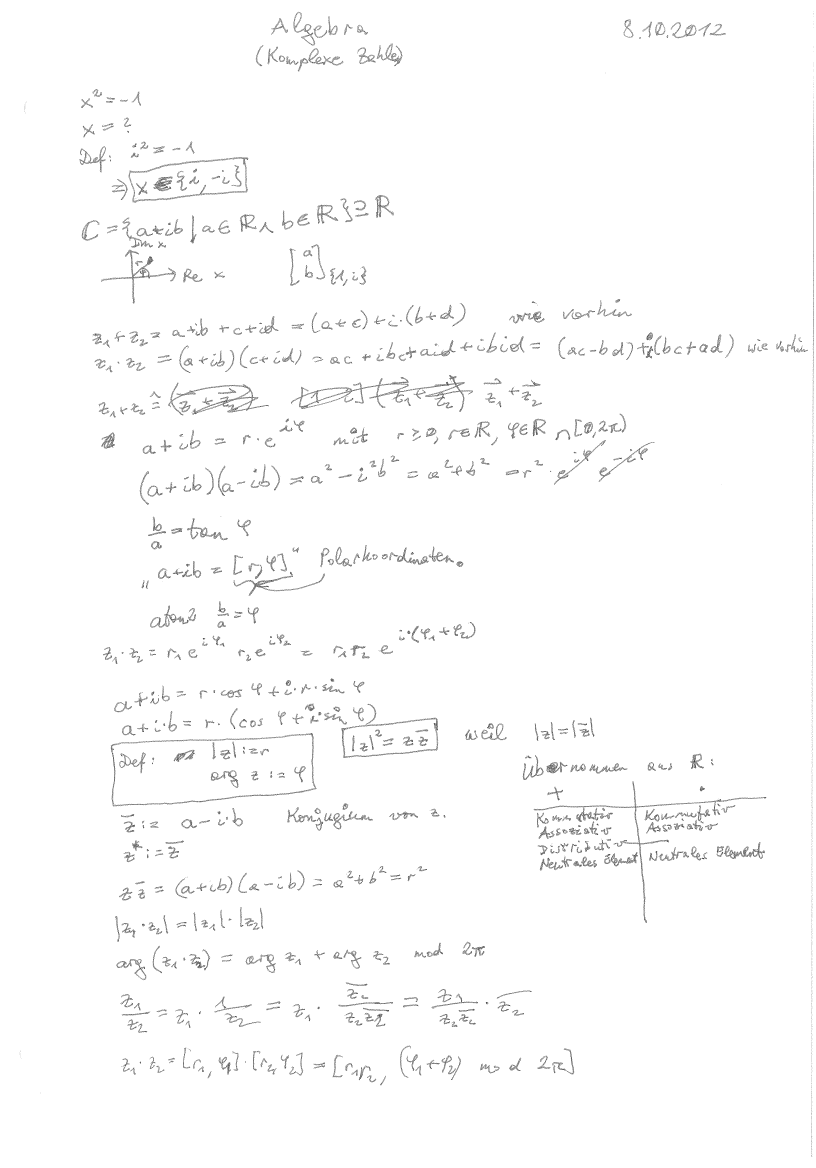 Algebra 8.10.2012
(Komplexe Zahlen)
x² = -1
x = ?
Def: i² = -1
⇒ x ∈ {i, -i}
ℂ = {a+ib | a ∈ ℝ ∧ b ∈ ℝ} ⊇ ℝ
Im x
r φ Re x [a b]{1,i}
z₁+z₂ = a+ib + c+id = (a+c)+i·(b+d) wie vorhin
z₁·z₂ = (a+ib)(c+id) = ac + ibc + aid + ibid = (ac-bd)+i(bc+ad) wie vorhin
z₁+z₂ ≙ z⃗₁+z⃗₂
a+ib = r·e^{iφ} mit r≥0, r∈ℝ, φ∈ℝ ∩ [0,2π)
(a+ib)(a-ib) = a² - i²b² = a²+b² = r² · e^{iφ} e^{-iφ}
b/a = tan φ
„a+ib = [r, φ]“ Polarkoordinaten.
atan2 b/a = φ
z₁·z₂ = r₁e^{iφ₁} r₂e^{iφ₂} = r₁r₂ e^{i·(φ₁+φ₂)}
a+ib = r·cos φ + i·r·sin φ
a+i·b = r·(cos φ + i·sin φ)
|z|² = z z̅ weil |z|=|z̅|
Def: |z| := r
arg z := φ
Übernommen aus ℝ:
+ ·
Kommutativ Kommutativ
Assoziativ Assoziativ
Distributiv
Neutrales Element Neutrales Element
z̅ := a-i·b Konjugium von z.
z* := z̅
z z̅ = (a+ib)(a-ib) = a²+b² = r²
|z₁·z₂| = |z₁|·|z₂|
arg (z₁·z₂) = arg z₁ + arg z₂ mod 2π
z₁/z₂ = z₁ · 1/z₂ = z₁ · z̅₂/(z₂z̅₂) = z₁/(z₂z̅₂) · z̅₂
z₁·z₂ = [r₁, φ₁]·[r₂, φ₂] = [r₁r₂, (φ₁+φ₂) mod 2π]